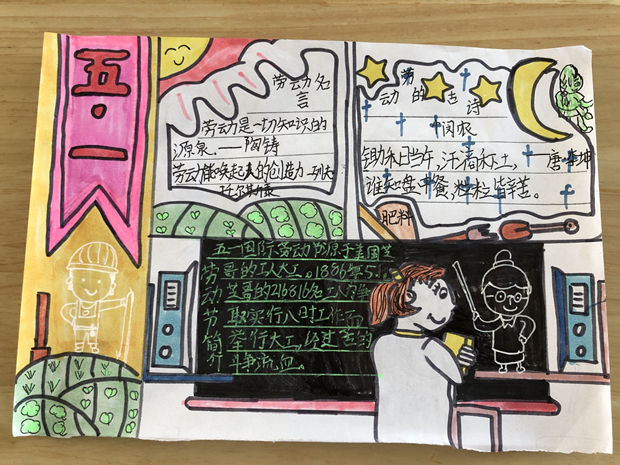 五·一
劳动名
言
劳动是一切知识的
源泉.——陶铸
劳动能唤起人的创造力
托尔斯泰
劳
动的古诗
农
锄禾日当午,汗滴禾下土,——唐李坤
谁知盘中餐,粒粒皆辛苦。
肥料
劳动节简介
五一国际劳动节源于美国芝
哥的工人大工。1886年5.1.
芝哥的216816名工人为争
取实行八时工作而
举行大工,经过苦的
斗争流血。